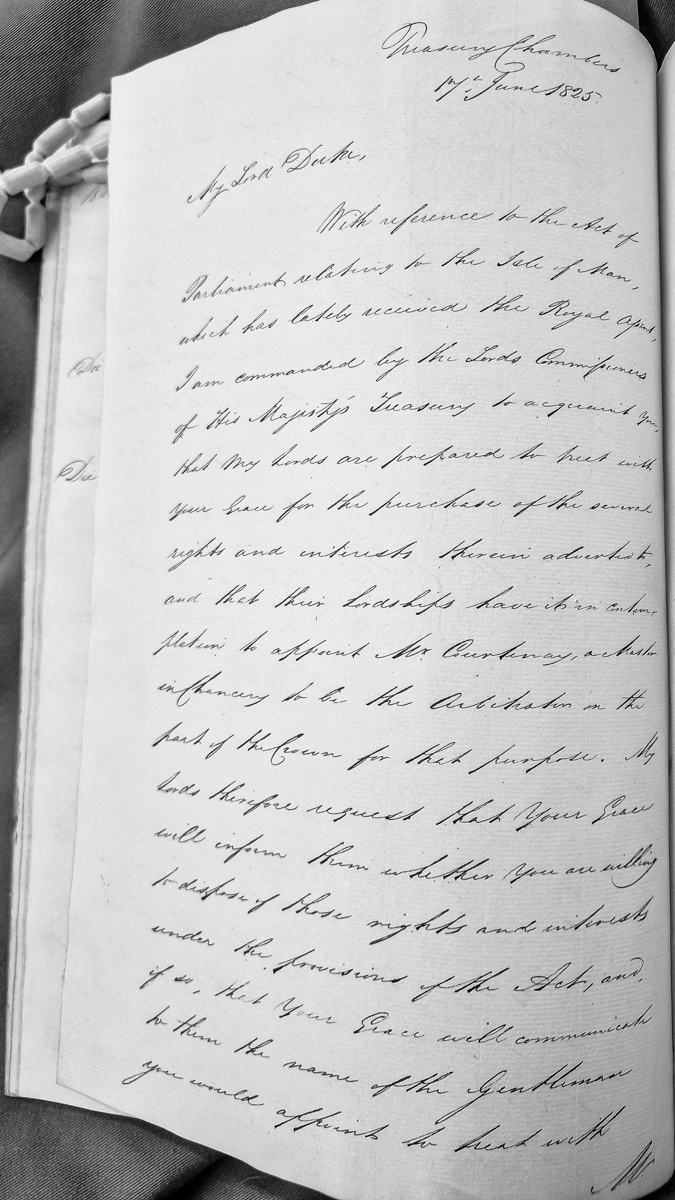 Treasury Chambers
17th June 1825.
My Lord Duke,
With reference to the Act of
Parliament relating to the Isle of Man,
which has lately received the Royal Assent,
I am commanded by the Lords Commissioners
of His Majesty's Treasury to acquaint you,
that My Lords are prepared to treat with
your Grace for the purchase of the several
rights and interests therein adverted to,
and that their Lordships have it in contem-
plation to appoint Mr. Courtenay, a Master
in Chancery to be the Arbitrator on the
part of the Crown for that purpose. My
Lords therefore request that Your Grace
will inform them whether You are willing
to dispose of those rights and interests
under the provisions of the Act, and,
if so, that Your Grace will communicate
to them the name of the Gentleman
you would appoint to treat with